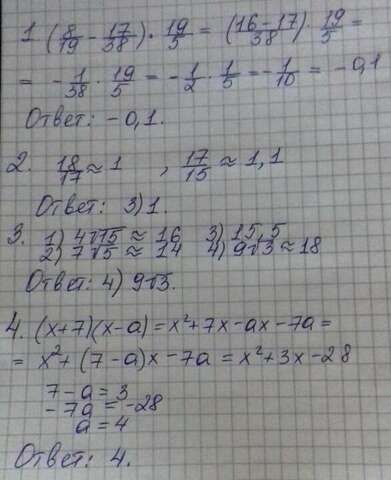 1 (8/19 - 17/38) · 19/5 = (16-17/38) · 19/5 =
= - 1/38 · 19/5 = - 1/2 · 1/5 = - 1/10 = -0,1
Ответ: -0,1.
2. 18/17 ≈ 1 , 17/15 ≈ 1,1
Ответ: 3) 1.
3. 1) 4√15 ≈ 16 3) 15,5
2) 7√5 ≈ 14 4) 9√3 ≈ 18
Ответ: 4) 9√3.
4. (x+7)(x-a) = x²+7x-ax-7a =
= x²+(7-a)x-7a = x²+3x-28
7-a = 3
-7a = -28
a = 4
Ответ: 4.